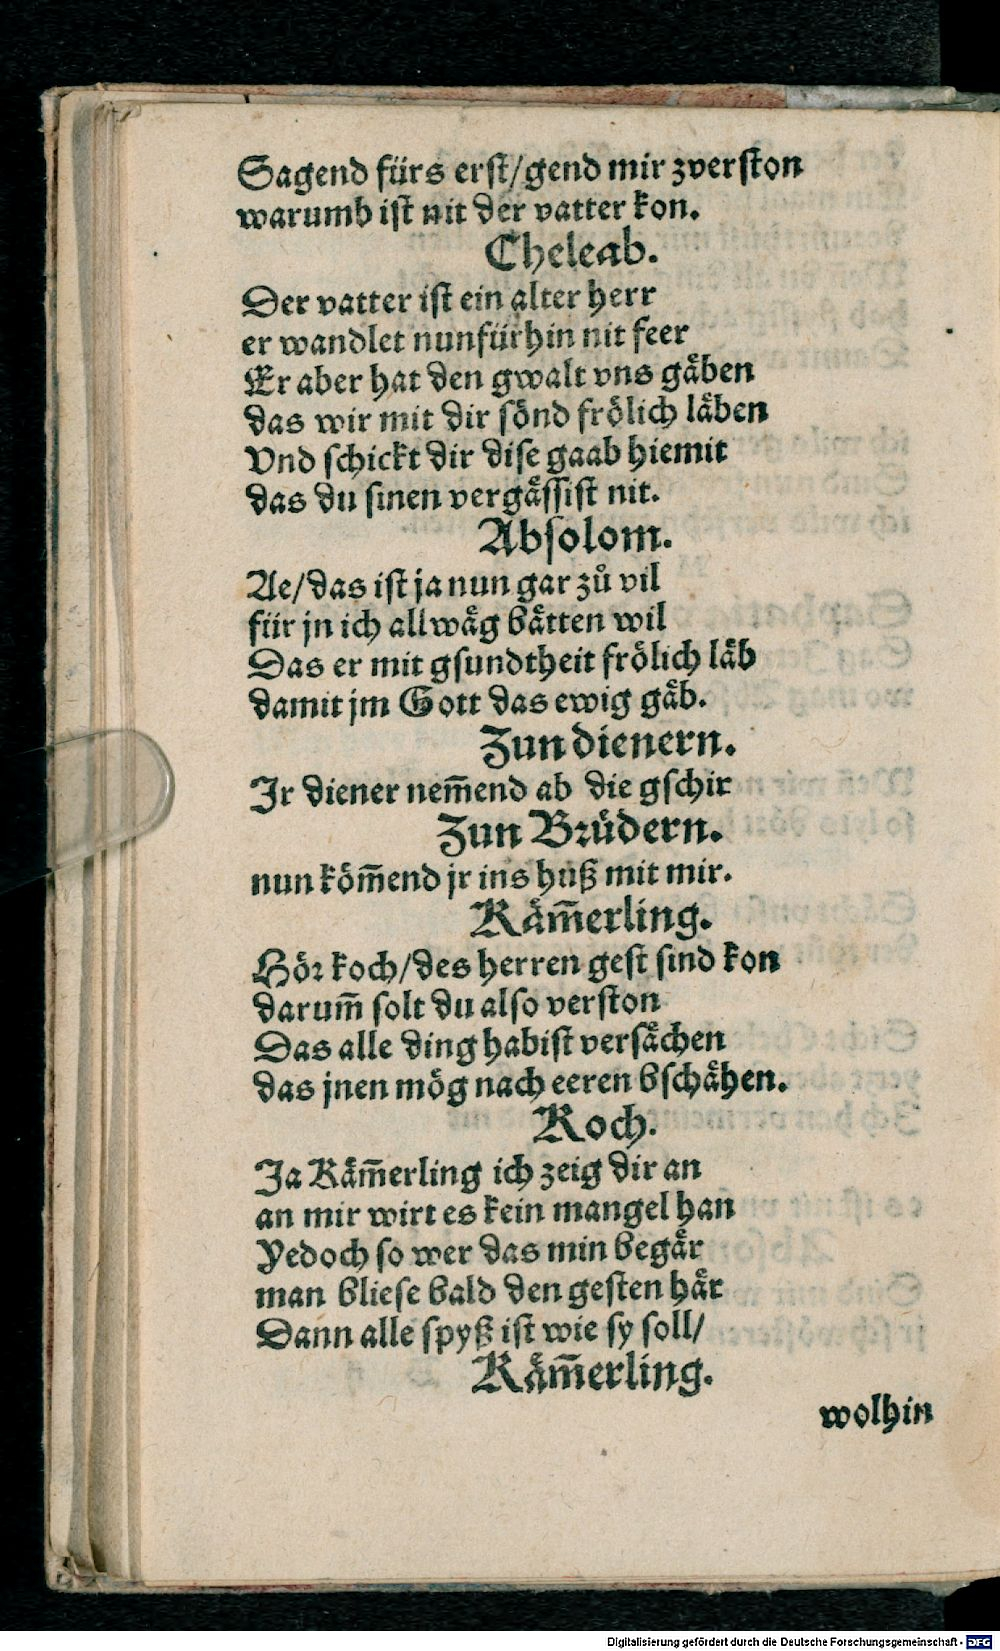 Sagend fürs erst/gend mir zverston
warumb ist nit der vatter kon.
Cheleab.
Der vatter ist ein alter herr
er wandlet nunfürhin nit feer
Er aber hat den gwalt vns gäben
das wir mit dir sönd frölich läben
Vnd schickt dir dise gaab hiemit
das du sinen vergässist nit.
Absolom.
Ae/das ist ja nun gar zů vil
für jn ich allwäg bätten wil
Das er mit gsundtheit frölich läb
damit jm Gott das ewig gäb.
Zun dienern.
Jr diener nem̄end ab die gschir
Zun Brüdern.
nun köm̄end jr ins huß mit mir.
Käm̄erling.
Hör koch/des herren gest sind kon
darum̄ solt du also verston
Das alle ding habist versächen
das jnen mög nach eeren bschähen.
Koch.
Ja Käm̄erling ich zeig dir an
an mir wirt es kein mangel han
Yedoch so wer das min begär
man bliese bald den gesten här
Dann alle spyß ist wie sy soll/
Käm̄erling.
wolhin
Digitalisierung gefördert durch die Deutsche Forschungsgemeinschaft - DFG